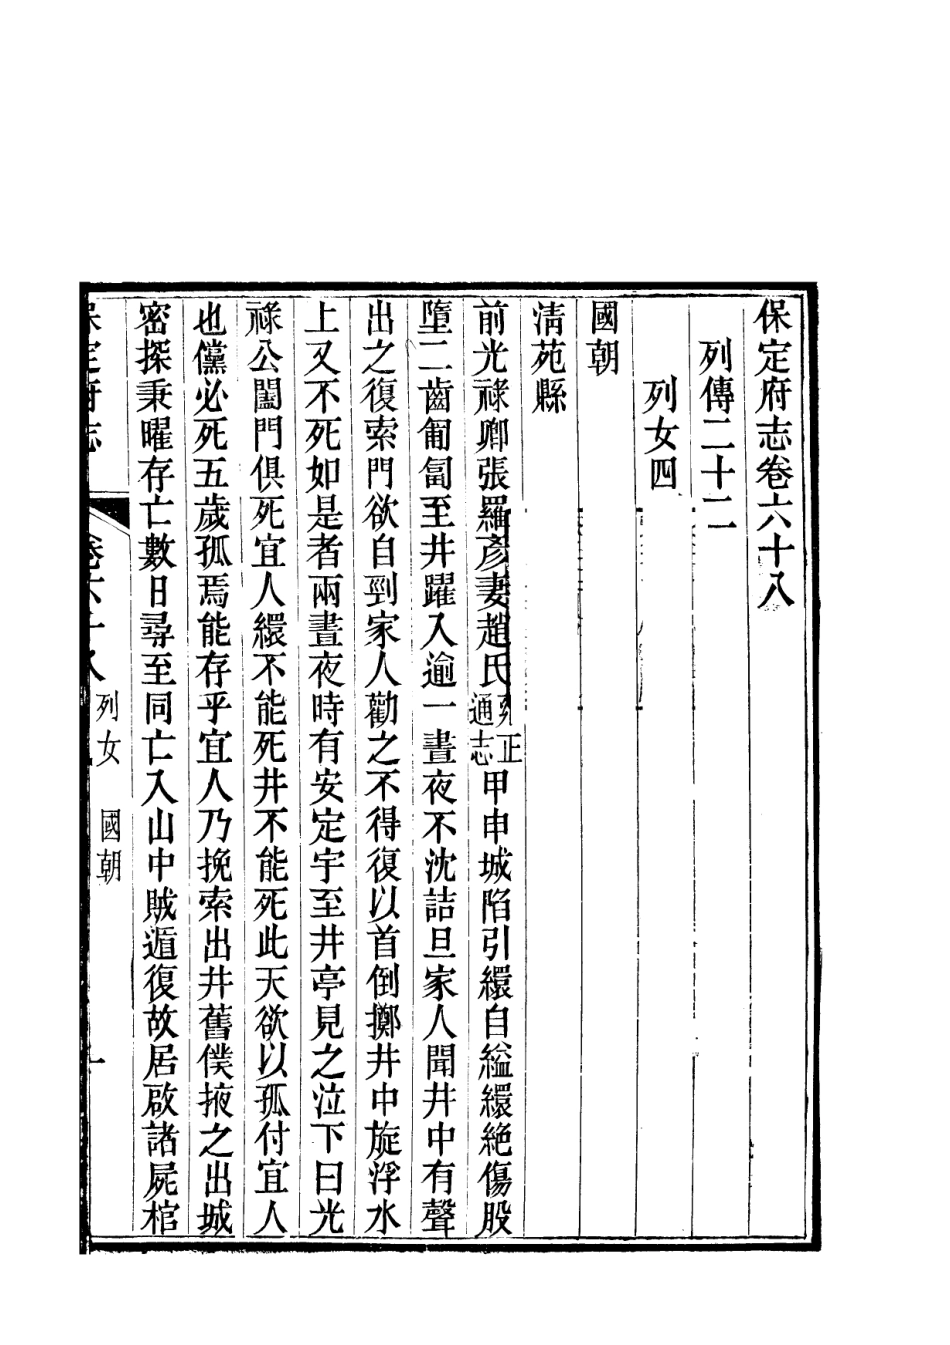 保定府志卷六十八
列傳二十二
列女四
國朝
清苑縣
前光祿卿張羅彥妻趙氏雍正通志甲申城陷引繯自縊繯絶傷股
墮二齒匍匐至井躍入逾一晝夜不沈詰旦家人聞井中有聲
出之復索門欲自剄家人勸之不得復以首倒擲井中旋浮水
上又不死如是者兩晝夜時有安定宇至井亭見之泣下曰光
祿公闔門俱死宜人繯不能死井不能死此天欲以孤付宜人
也儻必死五歲孤焉能存乎宜人乃挽索出井舊僕掖之出城
密探秉曜存亡數日尋至同亡入山中賊遁復故居啟諸屍棺
保定府志
卷六十八
列女
國朝
一